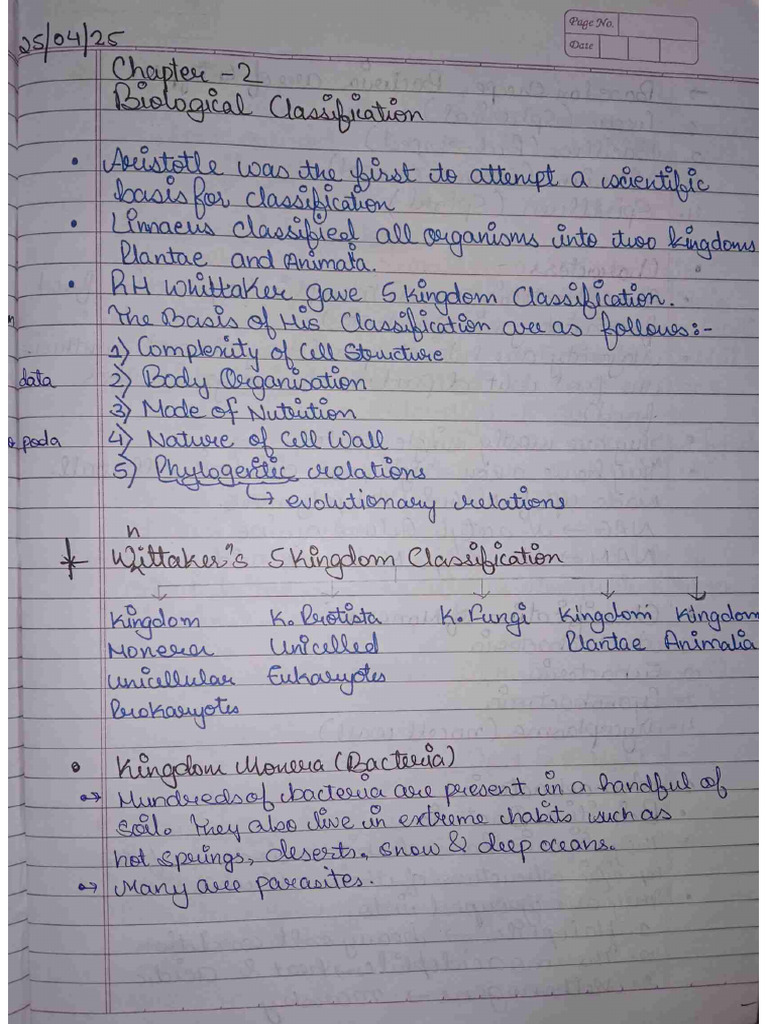 25/04/25
Page No.
Date
Chapter - 2
Biological Classification
• Aristotle was the first to attempt a scientific
basis for classification
• Linnaeus classified all organisms into two kingdoms
Plantae and Animata.
• RH Whittaker gave 5 kingdom Classification.
The Basis of His Classification are as follows:-
1) Complexity of Cell Structure
data
2) Body Organisation
3) Mode of Nutrition
poda
4) Nature of Cell Wall
5) Phylogentic relations
↳ evolutionary relations
h
Wittaker's 5 Kingdom Classification
Kingdom K. Protista K. Fungi Kingdom Kingdom
Monera Unicelled Plantae Animalia
Unicellular Eukaryotes
Prokaryotes
• Kingdom Monera (Bacteria)
→ Hundreds of bacteria are present in a handful of
soil. They also live in extreme habits such as
hot springs, deserts, snow & deep oceans.
→ Many are parasites.